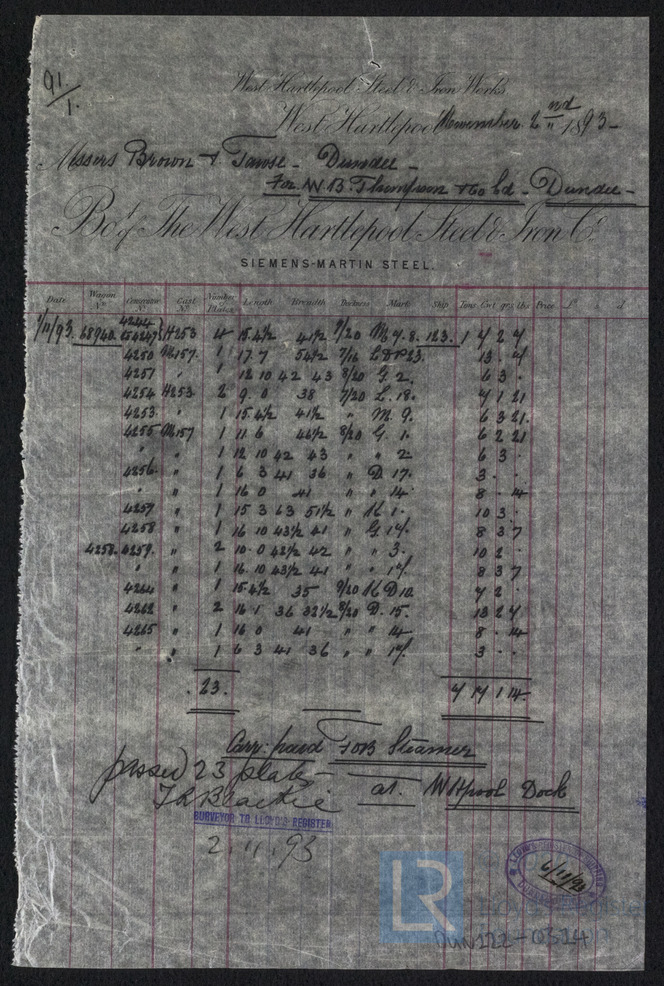 91/1.
West Hartlepool Steel & Iron Works
West Hartlepool November 2nd 1893-
Messrs Brown & Tawse - Dundee -
For W.B. Thompson & Co Ld - Dundee -
Bot. of The West Hartlepool Steel & Iron Co.
SIEMENS-MARTIN STEEL.
Date Wagon No Consecve No Cast No Number of Plates Length Breadth Thickness Mark Ship Tons Cwt qrs lbs Price £ s d
1/11/93. 68940 4244 H253 4 15.4½ 41½ 7/20 M 7.8. 123. 1 4 2 4
4250 M157. 1 17.7 54½ 7/16 13. 4
4251 " 1 12 10 42 43 8/20 G. 2. 6 3 .
4254 H253 2 9. 0 38 7/20 L. 18. 7 1 21
4253. " 1 15.4½ 41½ " M. 9. 6 3 21
4255 M157 1 11 6 46½ 8/20 G. 1. 6 2 21
" " 1 12 10 42 43 " " 2 6 3 .
4256. " 1 6 3 41 36 " D. 17. 3 . .
" " 1 16 0 41 " " 14 8 . 14
4257 " 1 15 3 63 51½ " K. 1. 10 3 .
4258 " 1 16 10 43½ 41 " G. 14. 8 3 7
4258. 4259. " 2 10. 0 42½ 42 " " 3. 10 2 .
" " 1 16. 10 43½ 41 " " 14. 8 3 7
4264 " 1 15.4½ 35 9/20 K D 10. 7 2 .
4262 " 2 16 1 36 32½ 8/20 D. 15. 13 2 7
4265 " 1 16 0 41 " " 14 8 . 14
" " 1 6 3 41 36 " " 17. 3 . .
23. 7 17 1 14.
Carr: paid FOB Steamer
passed 23 plates at. W Htpool Dock
T.R. Blackie
SURVEYOR TO LLOYD'S REGISTER
2.11.93
6/11/93
LR
DUN122-0314